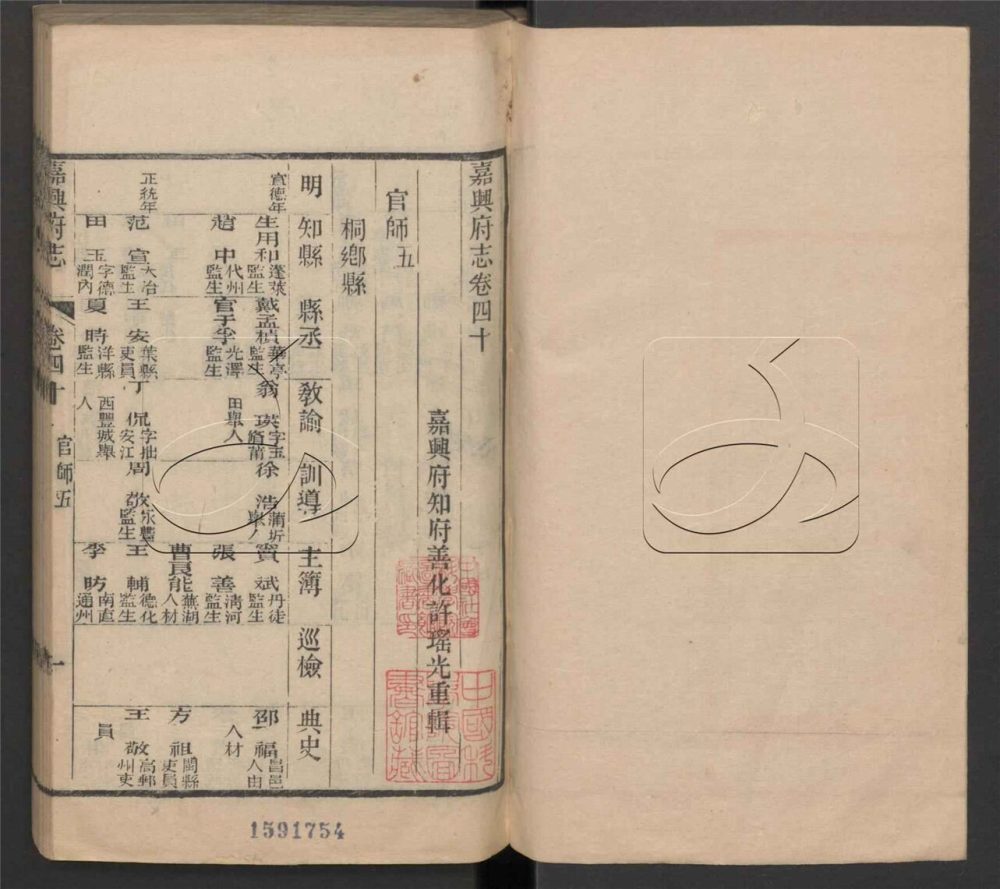 嘉興府志卷四十
嘉興府知府善化許瑤光重輯
官師五
桐鄉縣
明 知縣 縣丞 教諭 訓導 主簿 巡檢 典史
宣德年
生用和 蓬萊監生
戴孟楨 華亭監生
翁瑛 字玉
田舉人
徐浩 蒲圻舉人
竇斌 丹徒監生
邵福 昌邑人由
人材
趙中 代州監生
官于學 光澤監生
張善 清河監生
曹良能 蕪湖人材
方祖 閩縣吏員
正統年
范宣 大冶監生
王安 葉縣吏員
丁侃 字拙安江
西豐城舉
人
周敬 永豐監生
王輔 德化監生
王敬 高郵州吏
員
田玉 字德潤內
夏時 洋縣監生
李昉 南直通州
嘉興府志
卷四十
官師五
一
1591754